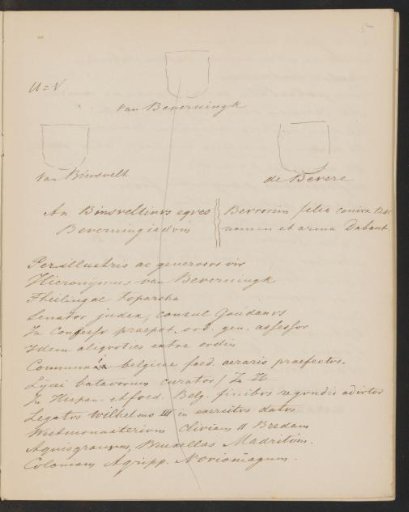 U = V
van Beverningk
van Binsvelt
de Bevere
An Binsveltinus eques Beveronum filia coniux
Beverningiadum nomen et arma dabant
Perillustris ac generosus vir
Hieronymus van Beverningk
Theilingae toparcha
Senator judex, consul Goudanus
In Confess praepot. ord. gen. assessor
Idem aliquoties extra ordin
Communis belgicae foed. aerario praefectus.
Lycei batavorum curator
In Hispan. et foed. Belg. finibus regundis
Legatus Wilhelmo III in exercitu datus
Westmonasterium Cliviam Bredam
Aquisgranum, Bruxellas Madritum.
Coloniam Agripp. Noviomagum.